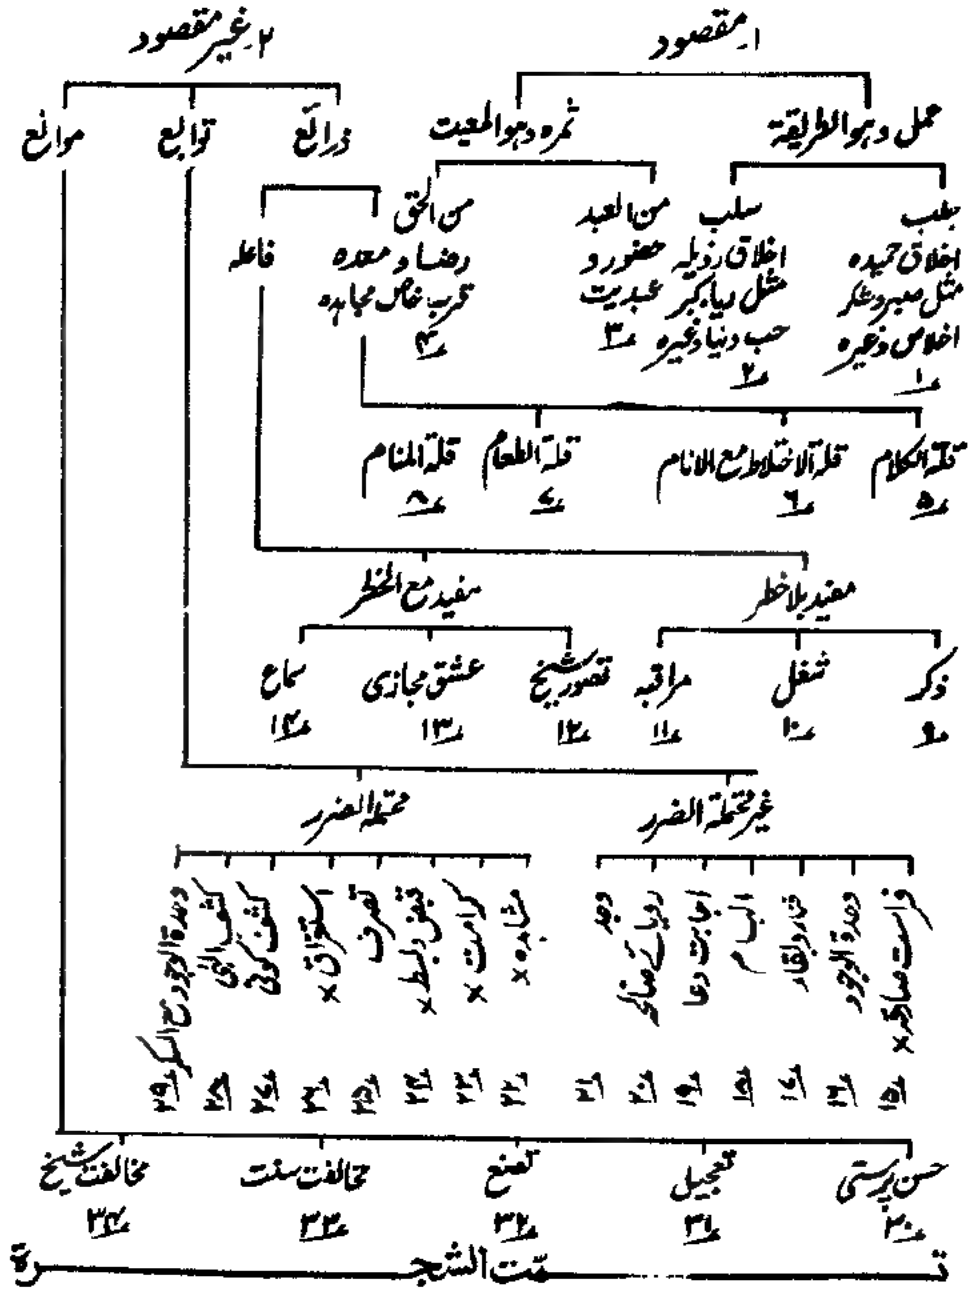 ۱۔ مقصود
۲۔ غیر مقصود
عمل وہو الطریقۃ
ثمرہ وہو المعیت
ذرائع
توابع
موانع
جلب
اخلاق حمیدہ
مثل صبر وشکر
اخلاص وغیرہ
۱
سلب
اخلاق رذیلہ
مثل ریا، کبر
حب دنیا وغیرہ
۲
من العبد
حضور و
عبدیت
۳
من الحق
رضا و
قرب خاص
۴
معدہ
مجاہدہ
فاعلہ
قلۃ الکلام
۵
قلۃ الاختلاط مع الانام
۶
قلۃ الطعام
۷
قلۃ المنام
۸
مفید بلا خطر
مفید مع الخطر
ذکر
۹
شغل
۱۰
مراقبہ
۱۱
تصور شیخ
۱۲
عشق مجازی
۱۳
سماع
۱۴
غیر محتملۃ الضرر
محتملۃ الضرر
فراست صادقہ ×
۱۵
وحدۃ الوجود
۱۶
فناء وبقاء
۱۷
الہام
۱۸
اجابت دعا
۱۹
رویائے صالحہ
۲۰
وجد
۲۱
مشاہدہ ×
۲۲
کرامت ×
۲۳
قبض وبسط ×
۲۴
تصرف
۲۵
استغراق ×
۲۶
کشف کونی
۲۷
کشف الٰہی
۲۸
وحدۃ الوجود مع السکر
۲۹
حسن پرستی
۳۰
تعجیل
۳۱
تصنع
۳۲
مخالفت سنت
۳۳
مخالفت شیخ
۳۴
تمّت الشجرة